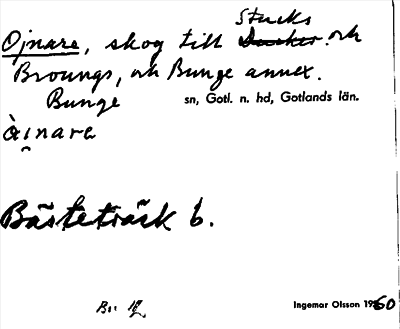 Stucks
Ojnare, skog till och
Broungs, och Bunge annex.
Bunge sn, Gotl. n. hd, Gotlands län.
àinare
Bästeträsk b.
Ingemar Olsson 1960